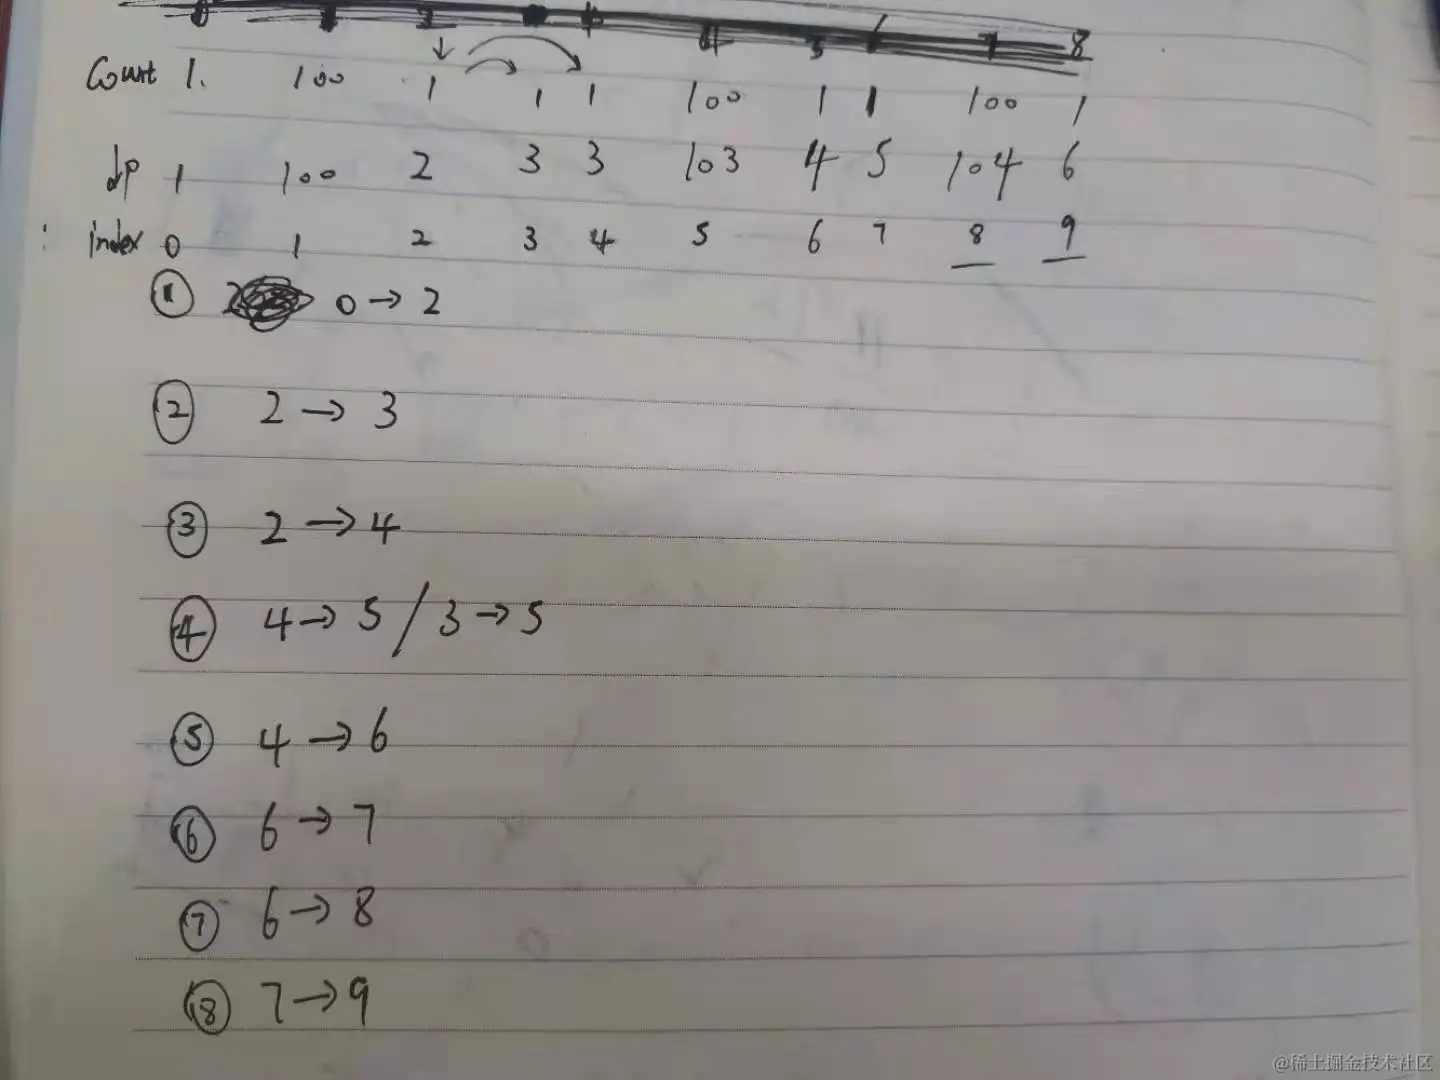 Count 1. 100 1 1 1 100 1 1 100 1
dp 1 100 2 3 3 103 4 5 104 6
: index 0 1 2 3 4 5 6 7 8 9
① 0 → 2
② 2 → 3
③ 2 → 4
④ 4 → 5 / 3 → 5
⑤ 4 → 6
⑥ 6 → 7
⑦ 6 → 8
⑧ 7 → 9
@稀土掘金技术社区